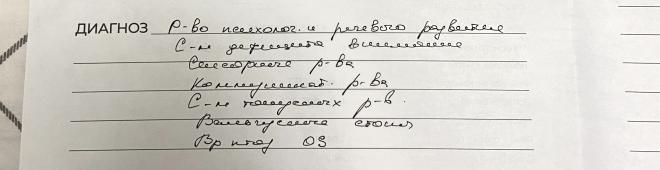 ДИАГНОЗ Р-во психолог. и речевого развития
С-м дефицита внимания
Сенсорные р-ва
Коммуникат. р-ва
С-м тонусных р-в.
Вальгусные стопы
Вр